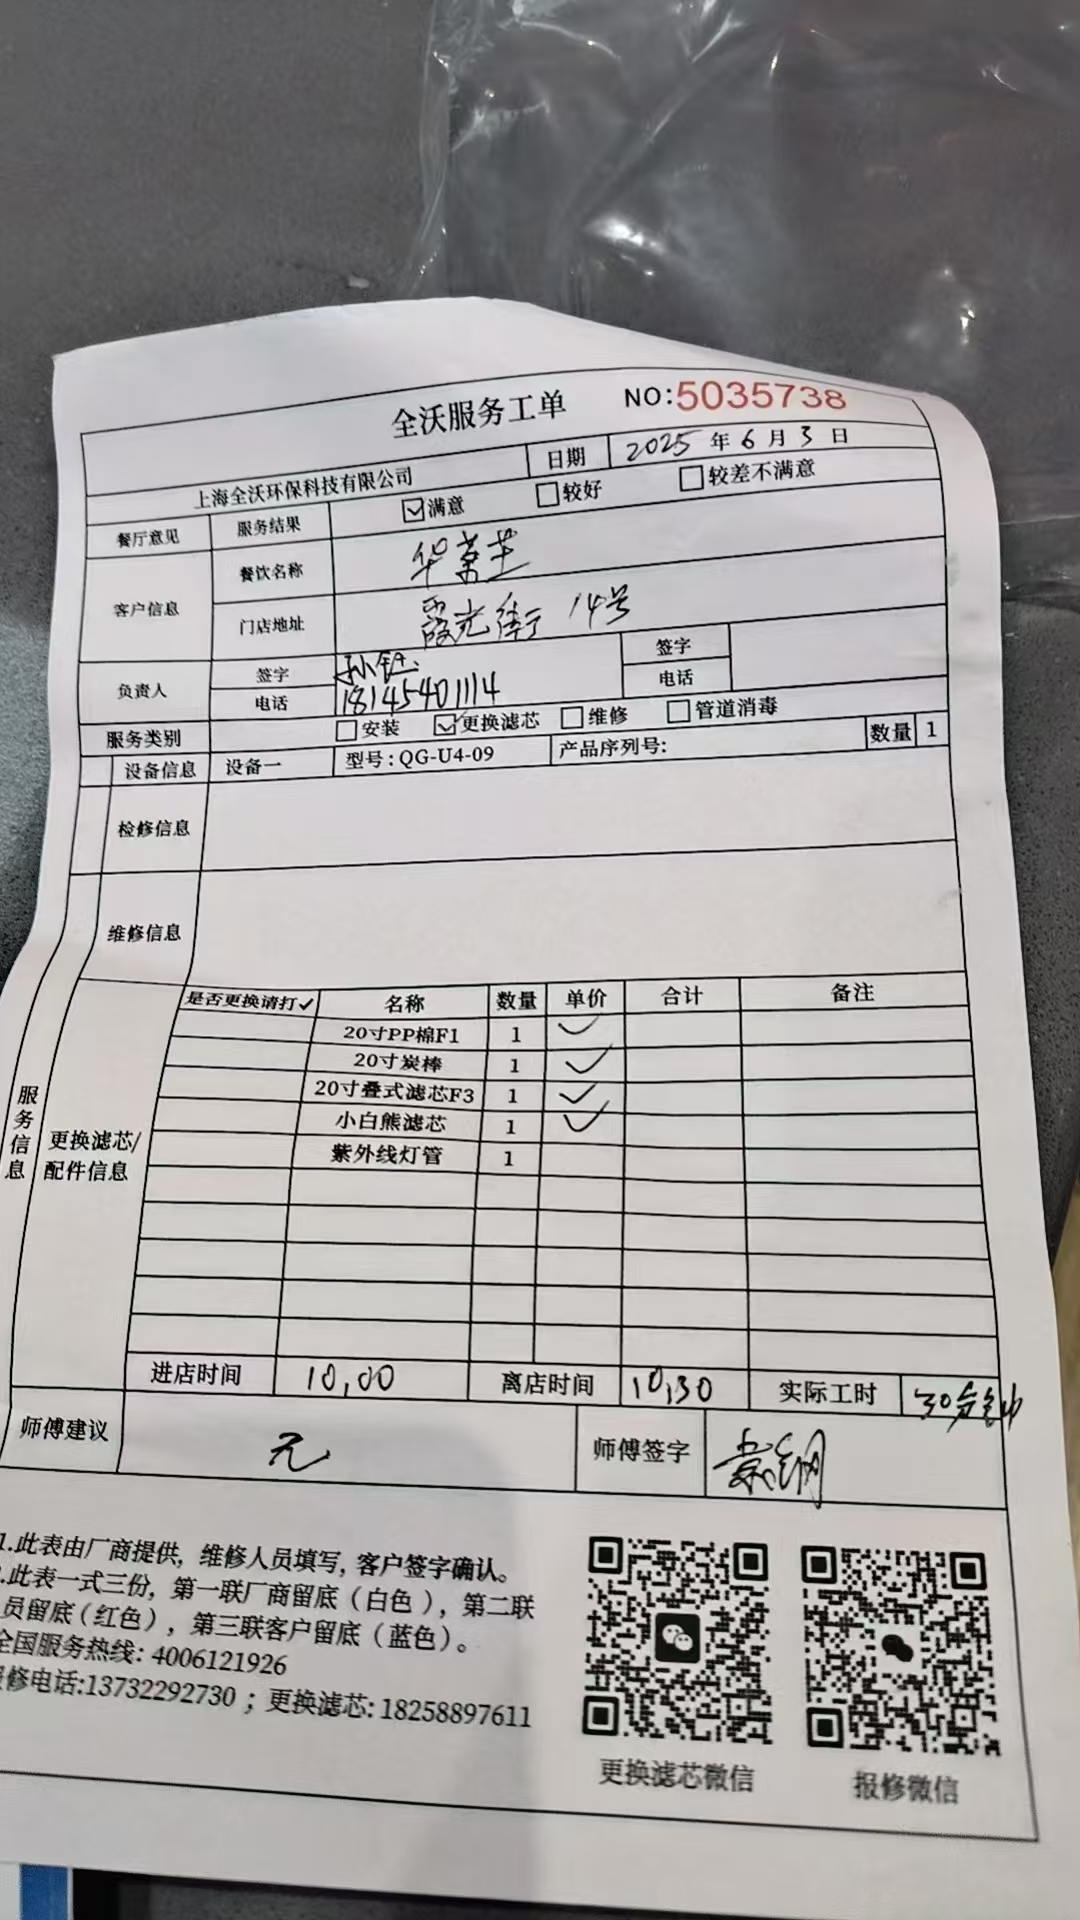 全沃服务工单 NO:5035738
上海全沃环保科技有限公司 日期 2025年6月3日
餐厅意见 服务结果 ☑满意 ☐较好 ☐较差不满意
客户信息 餐饮名称 华莱士
门店地址 霞光街 14号
负责人 签字 孙钰 签字
电话 18145401114 电话
服务类别 ☐安装 ☑更换滤芯 ☐维修 ☐管道消毒
设备信息 设备一 型号:QG-U4-09 产品序列号: 数量 1
检修信息
维修信息
服务信息
更换滤芯/配件信息
是否更换请打✓ 名称 数量 单价 合计 备注
20寸PP棉F1 1 ✓
20寸炭棒 1 ✓
20寸叠式滤芯F3 1 ✓
小白熊滤芯 1 ✓
紫外线灯管 1
进店时间 10,00 离店时间 10,30 实际工时 30分钟
师傅建议 无 师傅签字
1.此表由厂商提供,维修人员填写,客户签字确认。
.此表一式三份,第一联厂商留底(白色),第二联
员留底(红色),第三联客户留底(蓝色)。
全国服务热线:4006121926
修电话:13732292730;更换滤芯:18258897611
更换滤芯微信 报修微信